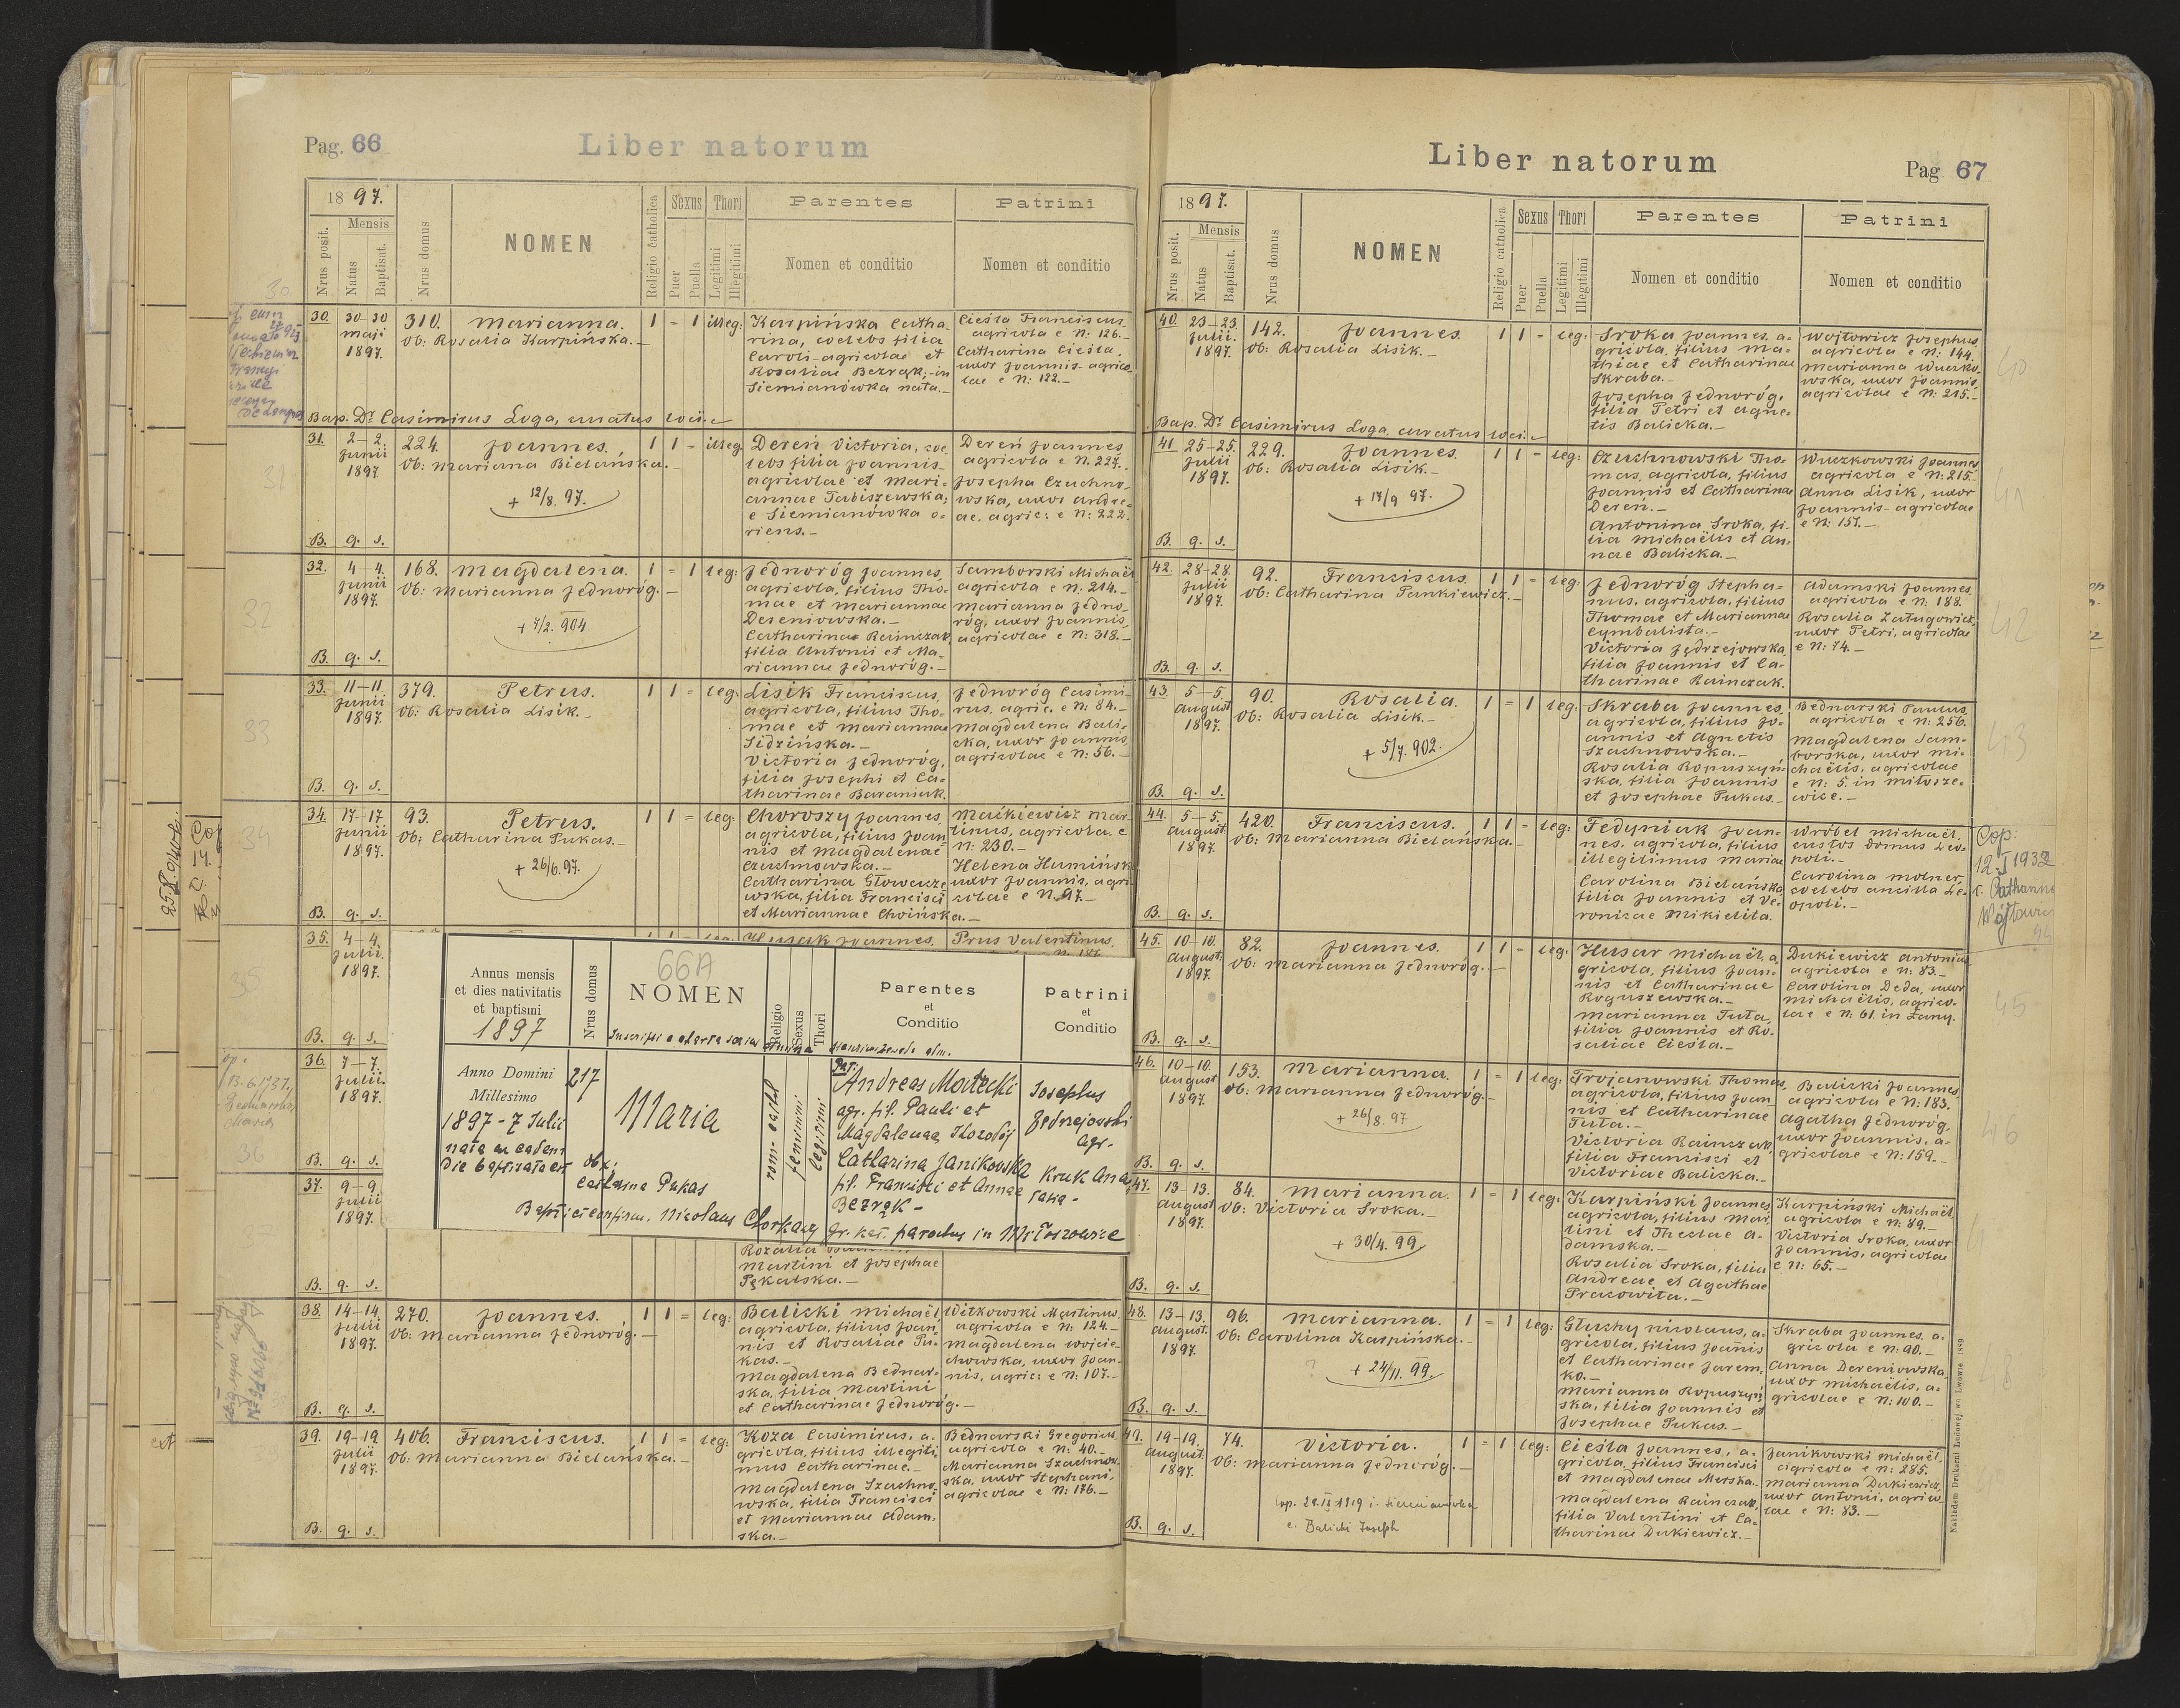 Pag. 66
Liber natorum
1897.
Nrus posit.
Mensis
Natus
Baptisat.
Nrus domus
NOMEN
Religio catholica
Sexus
Puer
Puella
Thori
Legitimi
Illegitimi
Parentes
Nomen et conditio
Patrini
Nomen et conditio
30
30.
30-30
maji
1897.
310.
Marianna.
Ob: Rosalia Karpińska.-
1 - 1 illeg:
Karpińska Catha-
rina, coelebs filia
Caroli-agricolae et
Rosaliae Bezrąk,-in
Siemianówka nata.-
Ciesta Franciscus
agricola e N: 126.-
Catharina Ciesta,
uxor Joannis-agrico-
lae e N: 122.-
Bap. Dr Casimirus Loga, curatus loci.
31
31.
2-2.
Junii
1897.
224.
Joannes.
Ob: Marianna Bielańska.-
+ 12/8. 97.
1 1 - illeg
Dereń Victoria, coe-
lebs filia Joannis-
agricolae et Mari-
annae Tabiszewska;
e Siemianówka o-
riens.-
Dereń Joannes
agricola e N. 227.-
Josepha Czuchno-
wska, uxor Andre-
ae, agric: e N: 222.
B. q. s.
32
32.
4-4.
Junii
1897.
168.
Magdalena.
Ob: Marianna Jednoróg.-
+ 7/2. 904.
1 - 1 leg:
Jednoróg Joannes,
agricola, filius Tho-
mae et Mariannae
Dereniowska.-
Catharina Rainczak
filia Antonii et Ma-
riannae Jednoróg.-
Samborski Michaël
agricola e N: 214.-
Marianna Jedno-
róg, uxor Joannis,
agricolae e N: 318.-
B. q. s.
33
33.
11-11.
Junii
1897.
379.
Petrus.
Ob: Rosalia Lisik.-
1 1 - leg:
Lisik Franciscus
agricola, filius Tho-
mae et Mariannae
Sidzińska.-
Victoria Jednoróg,
filia Josephi et Ca-
tharinae Baraniak.
Jednoróg Casimi-
rus, agric. e N: 84.-
Magdalena Bali-
cka, uxor Joannis,
agricolae e N: 56.-
B. q. s.
34
34.
17-17
Junii
1897.
93.
Petrus.
Ob: Catharina Pukas.-
+ 26/6. 97.
1 1 - leg:
Choroszy Joannes
agricola, filius Joan-
nis et Magdalenae
Czuchnowska.-
Catharina Głowacze-
wska, filia Francisci
et Mariannae Choińska.-
Maćkiewicz Mar-
tinus, agricola e
N: 230.-
Helena Humińsk
uxor Joannis, agri-
colae e N. 97.-
B. q. s.
35
35.
4-4.
Julii
1897.
Husak Joannes.
Prus Valentinus.
B. q. s.
36
36.
7-7.
Julii.
1897.
B. q. s.
37.
9-9.
Julii
1897.
B. q. s.
66A
Annus mensis
et dies nativitatis
et baptismi
1897
Nrus domus
NOMEN
Religio
Sexus
Thori
Parentes
et
Conditio
Patrini
et
Conditio
Anno Domini
Millesimo
1897 - 7 Julii
nata eu eadem
die baptizata est
217
Maria
obx:
Catharina Pukas
feminini
legitimi
Pat:
Andreas
agr. fil. Pauli et
Magdalenae
Catharina Janikowska
fil. Francisci et Annae
Bezrąk-
Josephus
Jędrzejowski
agr.-
Kruk Ana-
Nicolaus
gr. kat. parochus in Miłoszowice
Rozalia
Martini et Josephae
Pękalska.-
38.
14-14.
Julii
1897.
270.
Joannes.
Ob: Marianna Jednoróg.-
1 1 - leg:
Balicki Michaël
agricola, filius Joan-
nis et Rosaliae Pu-
kas.-
Magdalena Bednar-
ska, filia Martini
et Catharinae Jednoróg.-
Witkowski Martinus
agricola e N: 124.-
Magdalena Wojcie-
chowska, uxor Joan-
nis, agric: e N: 107.-
B. q. s.
39.
19-19.
Julii
1897.
406.
Franciscus.
Ob: Marianna Bielańska.-
1 1 - leg:
Koza Casimirus, a-
gricola, filius illegiti-
mus Catharinae.-
Magdalena Szachno-
wska, filia Francisci
et Mariannae Adam-
ska.-
Bednarski Gregorius
agricola e N: 40.-
Marianna Szachnow-
ska, uxor Stephani,
agricolae e N: 176.-
B. q. s.
Liber natorum
Pag 67
1897.
Nrus posit.
Mensis
Natus
Baptisat.
Nrus domus
NOMEN
Religio catholica
Sexus
Puer
Puella
Thori
Legitimi
Illegitimi
Parentes
Nomen et conditio
Patrini
Nomen et conditio
40.
23-23.
Julii.
1897.
142.
Joannes.
Ob: Rosalia Lisik.-
1 1 - leg:
Sroka Joannes, a-
gricola, filius Ma-
thiae et Catharinae
Skraba.-
Josepha Jednoróg,
filia Petri et Agne-
tis Balicka.-
Wojtowicz Josephus,
agricola e N: 144.
Marianna Wuczko-
wska, uxor Joannis,
agricolae e N: 215.-
40
Bap. Dr Casimirus Loga, curatus loci.
41.
25-25.
Julii
1897.
229.
Joannes.
Ob: Rosalia Lisik.-
+ 17/9 97.
1 1 - leg:
Czuchnowski Tho-
mas, agricola, filius
Joannis et Catharinae
Dereń.-
Antonina Sroka, fi-
lia Michaëlis et An-
nae Balicka.-
Wuczkowski Joannes
agricola e N: 215.-
Anna Lisik, uxor
Joannis-agricolae
e N: 157.-
41
B. q. s.
42.
28-28.
Julii
1897.
92.
Franciscus.
Ob: Catharina Pankiewicz.-
1 1 - leg:
Jednoróg Stepha-
nus, agricola, filius
Thomae et Mariannae
Cymbalista.-
Victoria Jędrzejowska,
filia Joannis et Ca-
tharinae Rainczak.
Adamski Joannes
agricola e N: 188.
Rosalia Załugowicz,
uxor Petri, agricolae
e N: 74.-
42
B. q. s.
43.
5-5.
August
1897.
90.
Rosalia.
Ob: Rosalia Lisik.-
+ 5/7. 902.
1 - 1 leg:
Skraba Joannes,
agricola, filius Jo-
annis et Agnetis
Szachnowska.-
Rosalia Kopuszyń-
ska, filia Joannis
et Josephae Pukas.-
Bednarski Paulus,
agricola e N: 256.
Magdalena Sam-
borska, uxor Mi-
chaëlis, agricolae
e N: 5. in Miłosze-
wice.-
43
B. q. s.
44.
5-5.
August.
1897.
420.
Franciscus.
Ob: Marianna Bielańska.-
1 1 - leg:
Fedyniak Joan-
nes, agricola, filius
illegitimus Mariae
Carolina Bielańska,
filia Joannis et Ve-
ronicae Mikielita.
Wróbel Michaël,
custos domus Leo-
poli.-
Carolina Molner,
coelebs ancilla Le-
opoli.-
Cop:
12.I 1932
c. Catharina
Wójtowicz
B. q. s.
45.
10-10.
August.
1897.
82.
Joannes.
Ob: Marianna Jednoróg.-
1 1 - leg:
Husar Michaël, a-
gricola, filius Joan-
nis et Catharinae
Roguszewska.-
Marianna Tuta,
filia Joannis et Ro-
saliae Ciesta.-
Dukiewicz Antonius
agricola e N: 83.-
Carolina Deda, uxor
Michaëlis, agrico-
lae e N: 61. in Łany.
45
B. q. s.
46.
10-10.
August
1897.
153.
Marianna.
Ob: Marianna Jednoróg.-
+ 26/8. 97
1 - 1 leg:
Trojanowski Thomas,
agricola, filius Joan-
nis et Catharinae
Tuta.-
Victoria Rainczak,
filia Francisci et
Victoriae Balicka.-
Balicki Joannes,
agricola e N: 183.
Agatha Jednoróg,
uxor Joannis, a-
gricolae e N: 159.-
46
B. q. s.
47.
13-13.
August
1897.
84.
Marianna.
Ob: Victoria Sroka.-
+ 30/4. 99.
1 - 1 leg:
Karpiński Joannes
agricola, filius Mar-
tini et Theclae A-
damska.-
Rosalia Sroka, filia
Andreae et Agathae
Pracowita.-
Karpiński Michaël
agricola e N: 89.-
Victoria Sroka, uxor
Joannis, agricolae
e N: 65.-
B. q. s.
48.
13-13.
August.
1897.
96.
Marianna.
Ob: Carolina Karpińska.-
+ 24/11. 99.
1 - 1 leg:
Głuchy Nicolaus, a-
gricola, filius Joannis
et Catharinae Jarem-
ko.-
Marianna Kopuszyń-
ska, filia Joannis et
Josephae Pukas.-
Skraba Joannes, a-
gricola e N: 90.-
Anna Dereniowska,
uxor Michaëlis, a-
gricolae e N: 100.-
48
B. q. s.
49.
19-19.
August.
1897.
74.
Victoria.
Ob: Marianna Jednoróg.-
Cop. 29.IX 1919 i. Siemianówka
c. Balicki Joseph
1 - 1 leg:
Ciesta Joannes, a-
gricola, filius Francisci
et Magdalenae Merska.-
Magdalena Rainczak,
filia Valentini et Ca-
tharinae Dukiewicz.-
Janikowski Michaël,
agricola e N: 285.
Marianna Dukiewicz,
uxor Antonii, agrico-
lae e N: 83.-
B. q. s.
Nakładem Drukarni Ludowej we Lwowie 1889